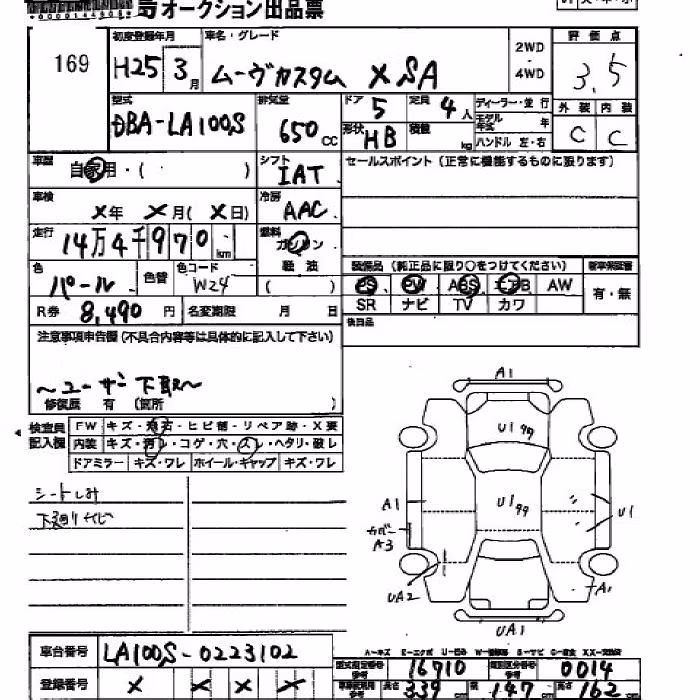 オークション出品票
169
初度登録年月 車名・グレード 2WD ・ 4WD 評価点
H25 3月 ムーヴカスタム XSA 3.5
型式 排気量 ドア 5 定員 4人 ディーラー・並行 外装 内装
DBA-LA100S 650cc 形状 HB 積載 kg モデル年式 年 C C
ハンドル 左・右
車歴 自家用・( ) シフト セールスポイント (正常に機能するものに限ります)
IAT
車検 冷房
X年 X月(X日) AAC
走行 燃料
14万4千970km ガソリン
色 色替 色コード 軽油 装備品 (純正品に限り○をつけてください) 新車保証書
パール W24 ( ) PS PW ABS エアB AW 有・無
R券 8,490円 名変期限 月 日 SR ナビ TV カワ
後日品
注意事項申告欄 (不具合内容等は具体的に記入して下さい)
~ユーザー下取~
修復歴 有 (箇所 )
検査員記入欄 FW キズ・飛石・ヒビ割・リペア跡・X要
内装 キズ・汚レ・コゲ・穴・スレ・ヘタリ・破レ
ドアミラー キズ・ワレ ホイール・キャップ キズ・ワレ
シートしみ
下廻りサビ
A1
U199
A1 U199 U1
カバー
A3
UA2 A1
UA1
A-キズ E-エクボ U-凹み W-補修跡 S-サビ C-腐食 XX-交換済
車台番号 LA100S-0223102
型式指定番号 16710 類別区分番号 0014
登録番号 X X X X
長さ 339cm 巾 147cm 高さ 162cm